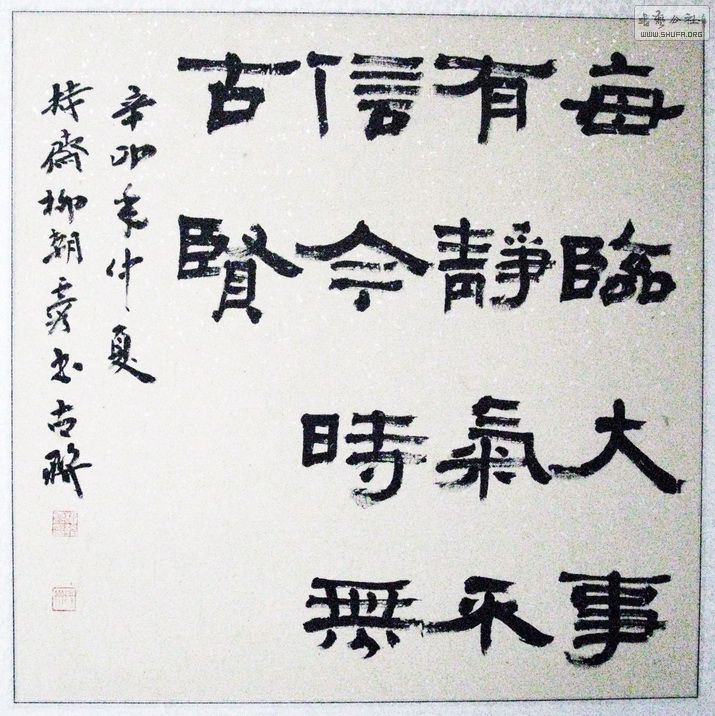 每臨大事
有靜氣不
信今時無
古賢
辛卯年仲夏
齋柳朝書古聯
WWW.SHUFA.ORG